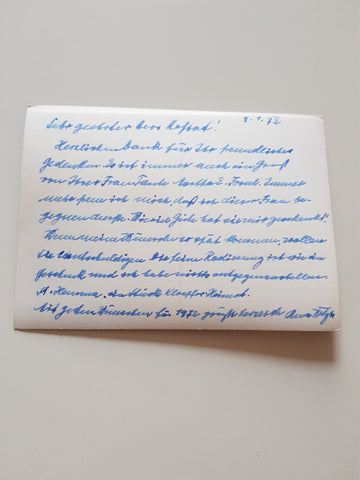 Sehr geehrter Herr Hofrat! 8.1.72
Herzlichen Dank für Ihr freundliches
gedenken. Es ist immer auch ein Gruß
von Ihrer Frau Tante Immer
mehr freu ich mich, daß ich dieser Frau be-
gegnen durfte. Wie viel Güte hat sie mir geschenkt!
Wenn meine Wünsche so spät kommen, wollen
Sie entschuldigen. Die feine Radierung ist wie ein
Geschenk und ich habe nichts entgegenzustellen
St. Hemma, ein Stück Heimat.
Mit guten Wünschen für 1972 grüßt herzlich